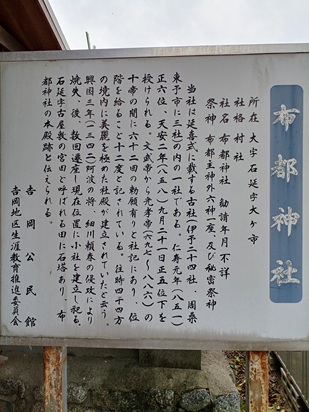 布都神社
所在 大字石延字大ヶ市
社格 村社
社名 布都神社 勧請年月 不詳
祭神 布都主神外六神二座、及び秘斎祭神
当社は延喜式に載する古社伊予二十四社、周桑
東予市に三社の内の一社である。仁寿元年(八五一)
正六位、天安二年(八五八)九月二十一日正五位下を
授けられる。文武帝から光孝帝(六九七~八八六)の
十帝の間に六十二回の勅願有りと社記にあり、位
階を給ること十二度と記されている。往時四千四方
の境内に美麗を極めた社殿が建立されていたと云う。
興国三年(一三四二)阿波の将、細川頼春の侵攻により
焼失、後、数回遷座し現在位置に小社を建立し祀る。
石延字古屋敷の宮田と呼ばれる田に石塔あり、布
都神社の本殿跡と伝えられる。
吉岡公民館
吉岡地区生涯教育推進委員会